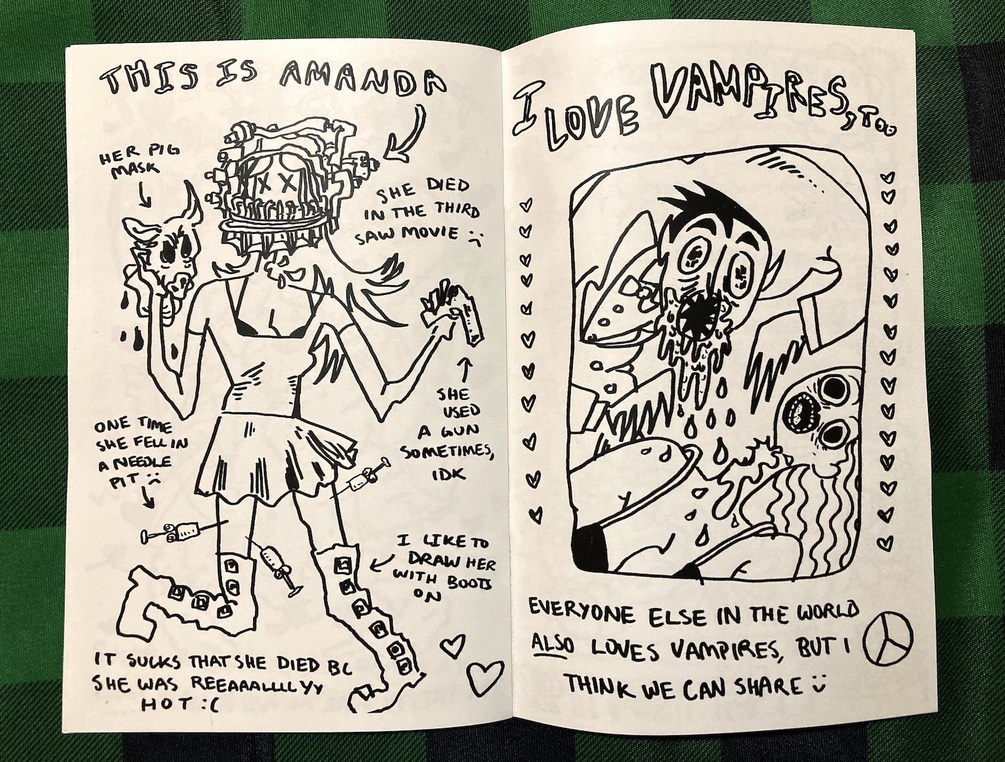 THIS IS AMANDA
HER PIG
MASK
SHE DIED
IN THE THIRD
SAW MOVIE :(
SHE
USED
A GUN
SOMETIMES,
IDK
ONE TIME
SHE FELL IN
A NEEDLE
PIT :(
I LIKE TO
DRAW HER
WITH BOOTS
ON
IT SUCKS THAT SHE DIED BC
SHE WAS REEAAALLLLYY
HOT :(
I LOVE VAMPIRES, TOO
EVERYONE ELSE IN THE WORLD
ALSO LOVES VAMPIRES, BUT I
THINK WE CAN SHARE :)